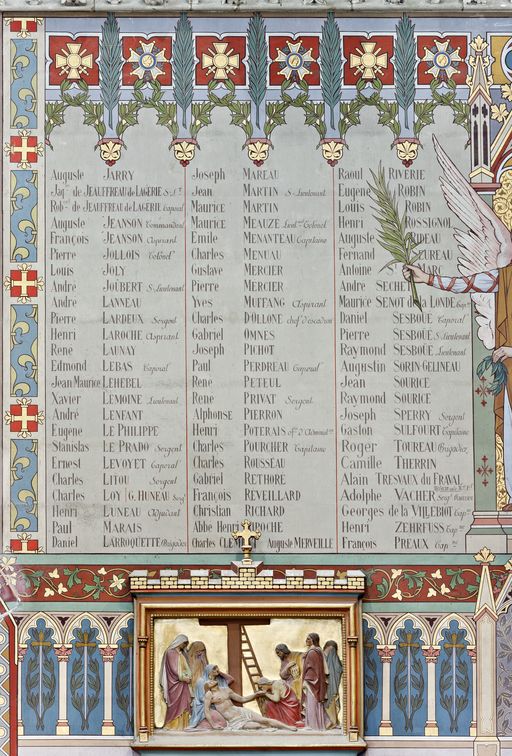 Auguste JARRY
Jaq.s de JEAUFFREAU de LAGERIE S.Lt.
Rob.t de JEAUFFREAU de LAGERIE Caporal
Auguste JEANSON Commandant
François JEANSON Aspirant
Pierre JOLLOIS Colonel
Louis JOLY
André JOUBERT S. Lieutenant
Andre LANNEAU
Pierre LARDEUX Sergent
Henri LAROCHE Aspirant
Rene LAUNAY
Edmond LEBAS Caporal
Jean Maurice LEHEBEL
Xavier LEMOINE Lieutenant
André LENFANT
Eugene LE PHILIPPE
Stanislas LE PRADO Sergent
Ernest LEVOYET Caporal
Charles LITOU Sergent
Charles LOY G. HUNEAU Sergt
Henri LUNEAU Adjudant
Paul MARAIS
Daniel LARROQUETTE Brigadier
Joseph MAREAU
Jean MARTIN S. Lieutenant
Maurice MARTIN
Maurice MEAUZE Lieut. Colonel
Emile MENANTEAU Capitaine
Charles MENUAU
Gustave MERCIER
Pierre MERCIER
Yves MUFFANG Aspirant
Charles D'OLLONE chef d'escadron
Gabriel OMNES
Joseph PICHOT
Paul PERDREAU Caporal
René PETEUL
René PRIVAT Sergent
Alphonse PIERRON
Henri POTERAIS
Charles POURCHER Capitaine
Charles ROUSSEAU
Gabriel RETHORE
François REVEILLARD
Christian RICHARD
Abbe Henri
Charles Auguste MERVEILLE
Raoul RIVERIE
Eugene ROBIN
Louis ROBIN
Henri ROSSIGNOL
Auguste
Fernand
Antoine
André
Maurice SENOT de la LONDE Capne
Daniel SESBOUÉ Caporal
Pierre SESBOUÉ S. Lieutenant
Raymond SESBOUÉ Lieutenant
Augustin SORIN-GELINEAU
Jean SOURICE
Raymond SOURICE
Joseph SPERRY Sergent
Gaston SULFOURT Capitaine
Roger TOUREAU Brigadier
Camille THERRIN
Alain TRESVAUX du FRAVAL
Adolphe VACHER
Georges de la VILLEBIOT Capne
Henri ZEHRFUSS Capne
François PREAUX Capne